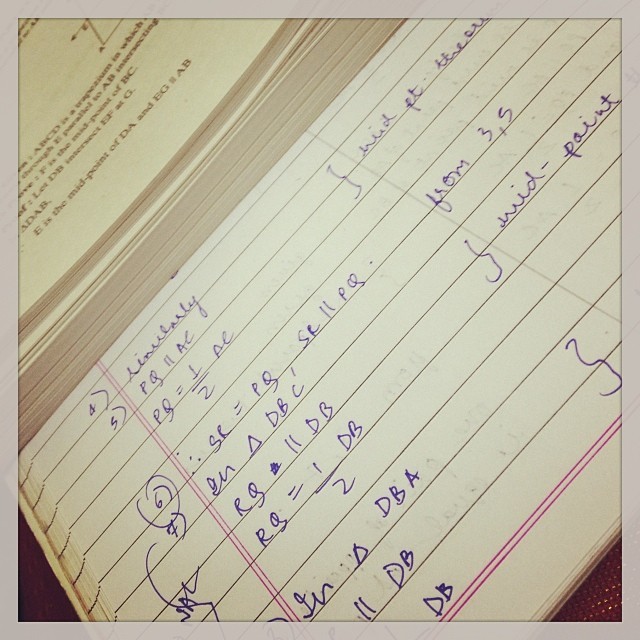 ABCD is a trapezium in which
parallel to AB intersecting
F is the mid-point of BC.
Let DB intersect EF at G.
ΔDAB.
E is the mid-point of DA and EG || AB
} mid pt. theorem
4) similarly
5) PQ || AC
PQ = 1/2 AC
from 3,5
(6) ∴ SR = PQ, SR || PQ.
7) In Δ DBC
RQ || DB } mid-point
RQ = 1/2 DB
In Δ DBA
|| DB }
DB